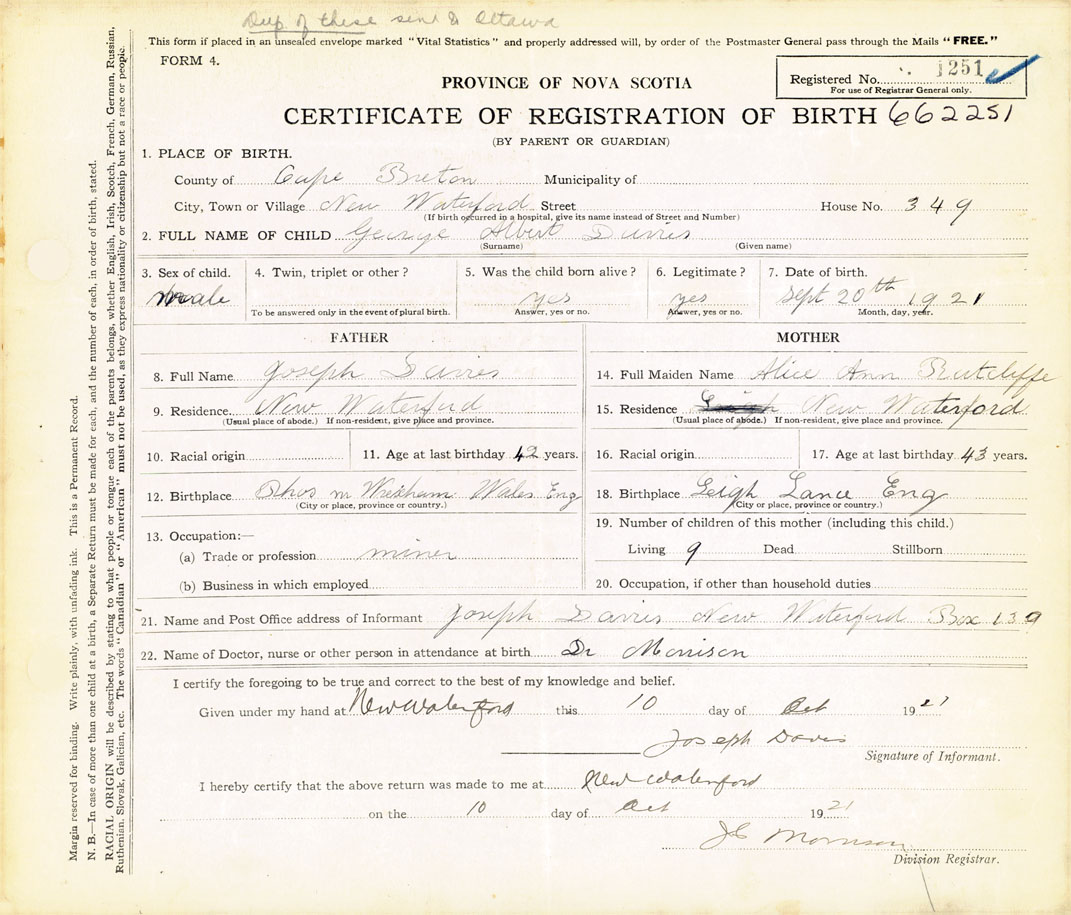 Dup of these sent to Ottawa
This form if placed in an unsealed envelope marked "Vital Statistics" and properly addressed will, by order of the Postmaster General pass through the Mails "FREE."
FORM 4.
Registered No. 1251
For use of Registrar General only.
PROVINCE OF NOVA SCOTIA
CERTIFICATE OF REGISTRATION OF BIRTH 662251
(BY PARENT OR GUARDIAN)
1. PLACE OF BIRTH.
County of Cape Breton Municipality of
City, Town or Village New Waterford Street House No. 349
(If birth occurred in a hospital, give its name instead of Street and Number)
2. FULL NAME OF CHILD George Albert Davies
(Surname) (Given name)
3. Sex of child. 4. Twin, triplet or other? 5. Was the child born alive? 6. Legitimate? 7. Date of birth.
male yes yes Sept 20th 1921
To be answered only in the event of plural birth. Answer, yes or no. Answer, yes or no. Month, day, year.
FATHER MOTHER
8. Full Name Joseph Davies 14. Full Maiden Name Alice Ann Rutcliffe
9. Residence. New Waterford 15. Residence Leigh New Waterford
(Usual place of abode.) If non-resident, give place and province. (Usual place of abode.) If non-resident, give place and province.
10. Racial origin 11. Age at last birthday 42 years. 16. Racial origin 17. Age at last birthday 43 years.
12. Birthplace Rhos nr Wrexham Wales Eng 18. Birthplace Leigh Lance Eng
(City or place, province or country.) (City or place, province or country.)
13. Occupation:— 19. Number of children of this mother (including this child.)
(a) Trade or profession miner Living 9 Dead Stillborn
(b) Business in which employed 20. Occupation, if other than household duties
21. Name and Post Office address of Informant Joseph Davies New Waterford Box 139
22. Name of Doctor, nurse or other person in attendance at birth Dr Morrison
I certify the foregoing to be true and correct to the best of my knowledge and belief.
Given under my hand at New Waterford this 10 day of Oct 1921
Joseph Davis
Signature of Informant.
I hereby certify that the above return was made to me at New Waterford
on the 10 day of Oct 1921
J C Morrison
Division Registrar.
Margin reserved for binding. Write plainly, with unfading ink. This is a Permanent Record.
N. B.—In case of more than one child at a birth, a Separate Return must be made for each, and the number of each, in order of birth, stated.
RACIAL ORIGIN will be described by stating to what people or tongue each of the parents belongs, whether English, Irish, Scotch, French, German, Russian,
Ruthenian, Slovak, Galician, etc. The words "Canadian" or "American" must not be used, as they express nationality or citizenship but not a race or people.